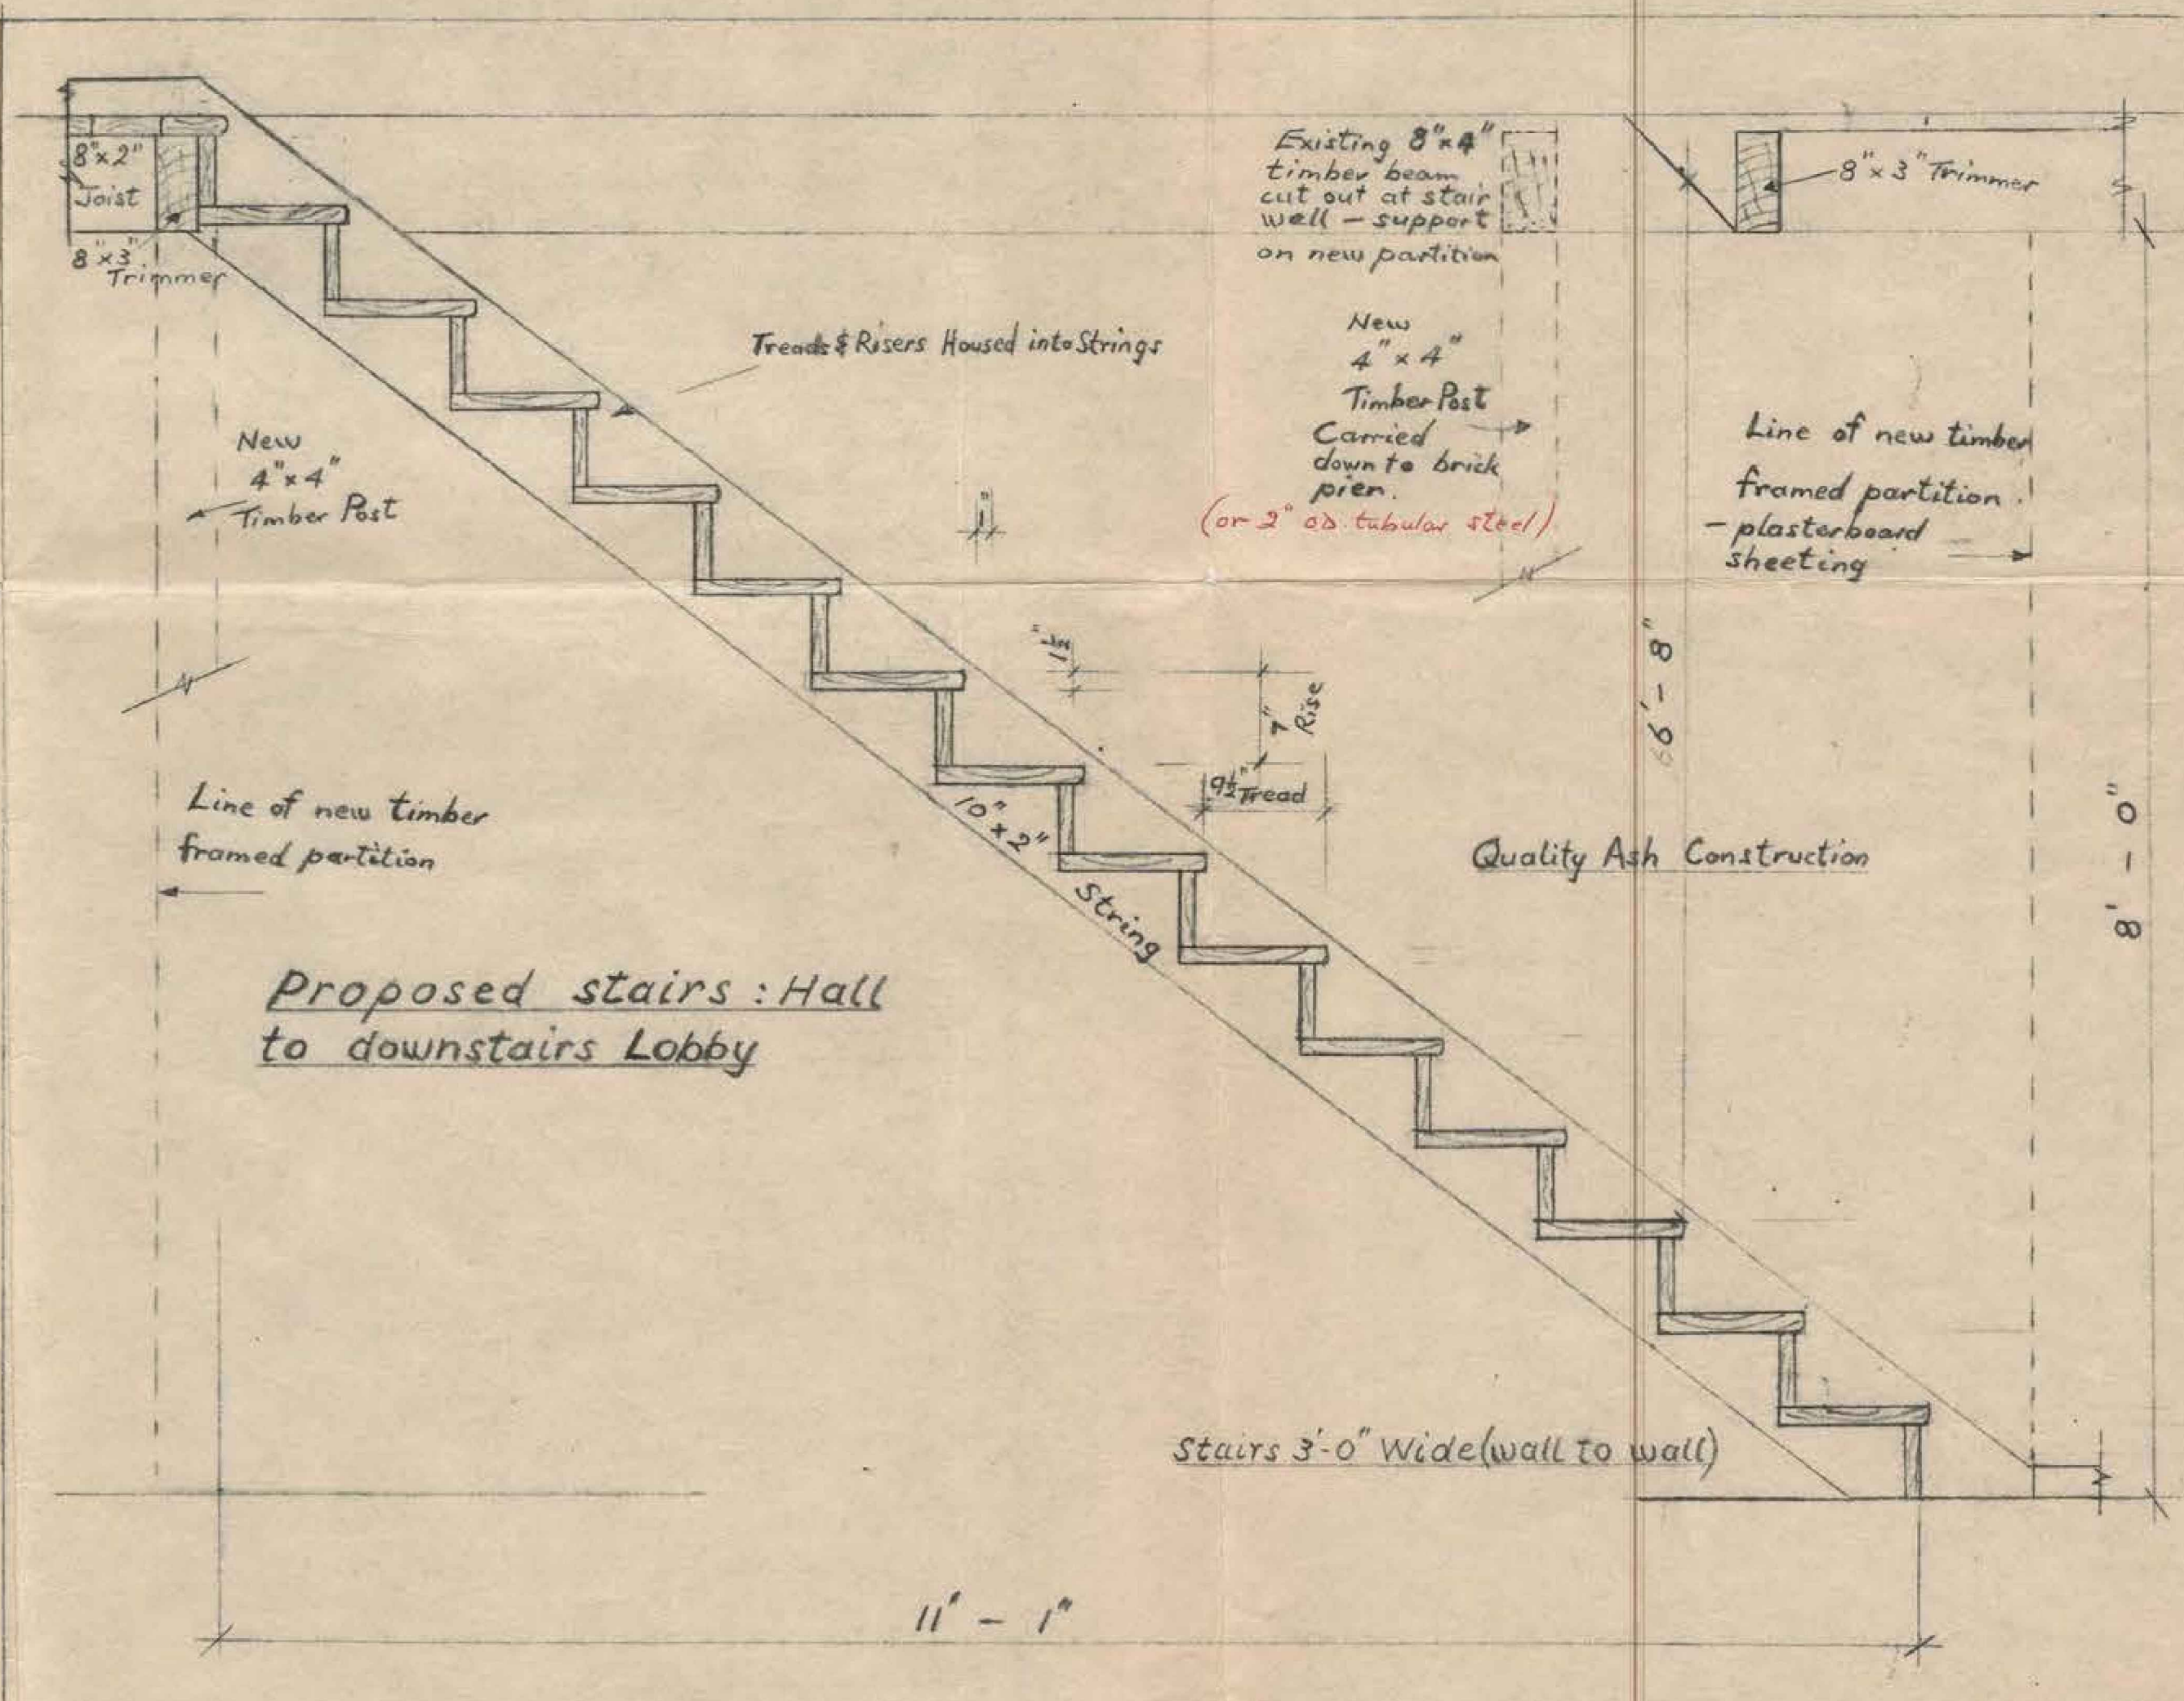 8"x2"
Joist
8"x3"
Trimmer
Existing 8"x4"
timber beam
cut out at stair
well – support
on new partition
8"x3" Trimmer
Treads & Risers Housed into Strings
New
4"x4"
Timber Post
Carried
down to brick
pier.
(or 2" OD. tubular steel)
Line of new timber
framed partition.
– plasterboard
sheeting
New
4"x4"
Timber Post
1"
7"
Rise
9½" Tread
6'-8"
8'-0"
Line of new timber
framed partition
10"x2"
String
Quality Ash Construction
Proposed stairs : Hall
to downstairs Lobby
Stairs 3'-0" Wide (wall to wall)
11' - 1"